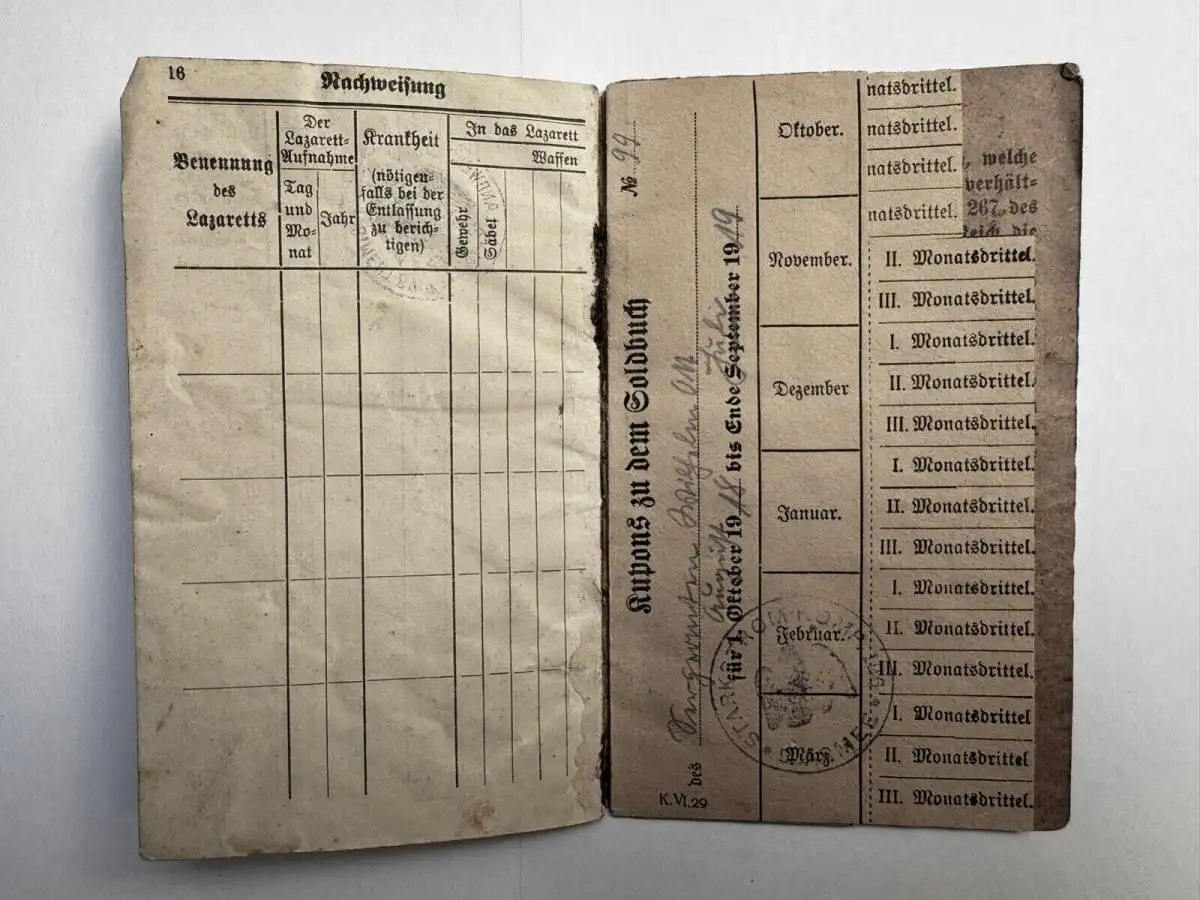 16
Nachweisung
Benennung
des
Lazaretts
Der
Lazarett-
Aufnahme
Tag
und
Mo-
nat
Jahr
Krankheit
(nötigen-
falls bei der
Entlassung
zu berich-
tigen)
In das Lazarett
Waffen
Gewehr
Säbel
№ 99
Kupons zu dem Soldbuch
des Wilhelm
August Juli
für 1. Oktober 1918 bis Ende September 1919
K.VI.29
Oktober.
November.
Dezember
Januar.
Februar.
März.
natsdrittel.
natsdrittel.
natsdrittel.
natsdrittel.
II. Monatsdrittel.
III. Monatsdrittel.
I. Monatsdrittel.
II. Monatsdrittel.
III. Monatsdrittel.
I. Monatsdrittel.
II. Monatsdrittel.
III. Monatsdrittel.
I. Monatsdrittel.
II. Monatsdrittel.
III. Monatsdrittel.
I. Monatsdrittel
II. Monatsdrittel
III. Monatsdrittel.
welche
verhält-
267 des
die